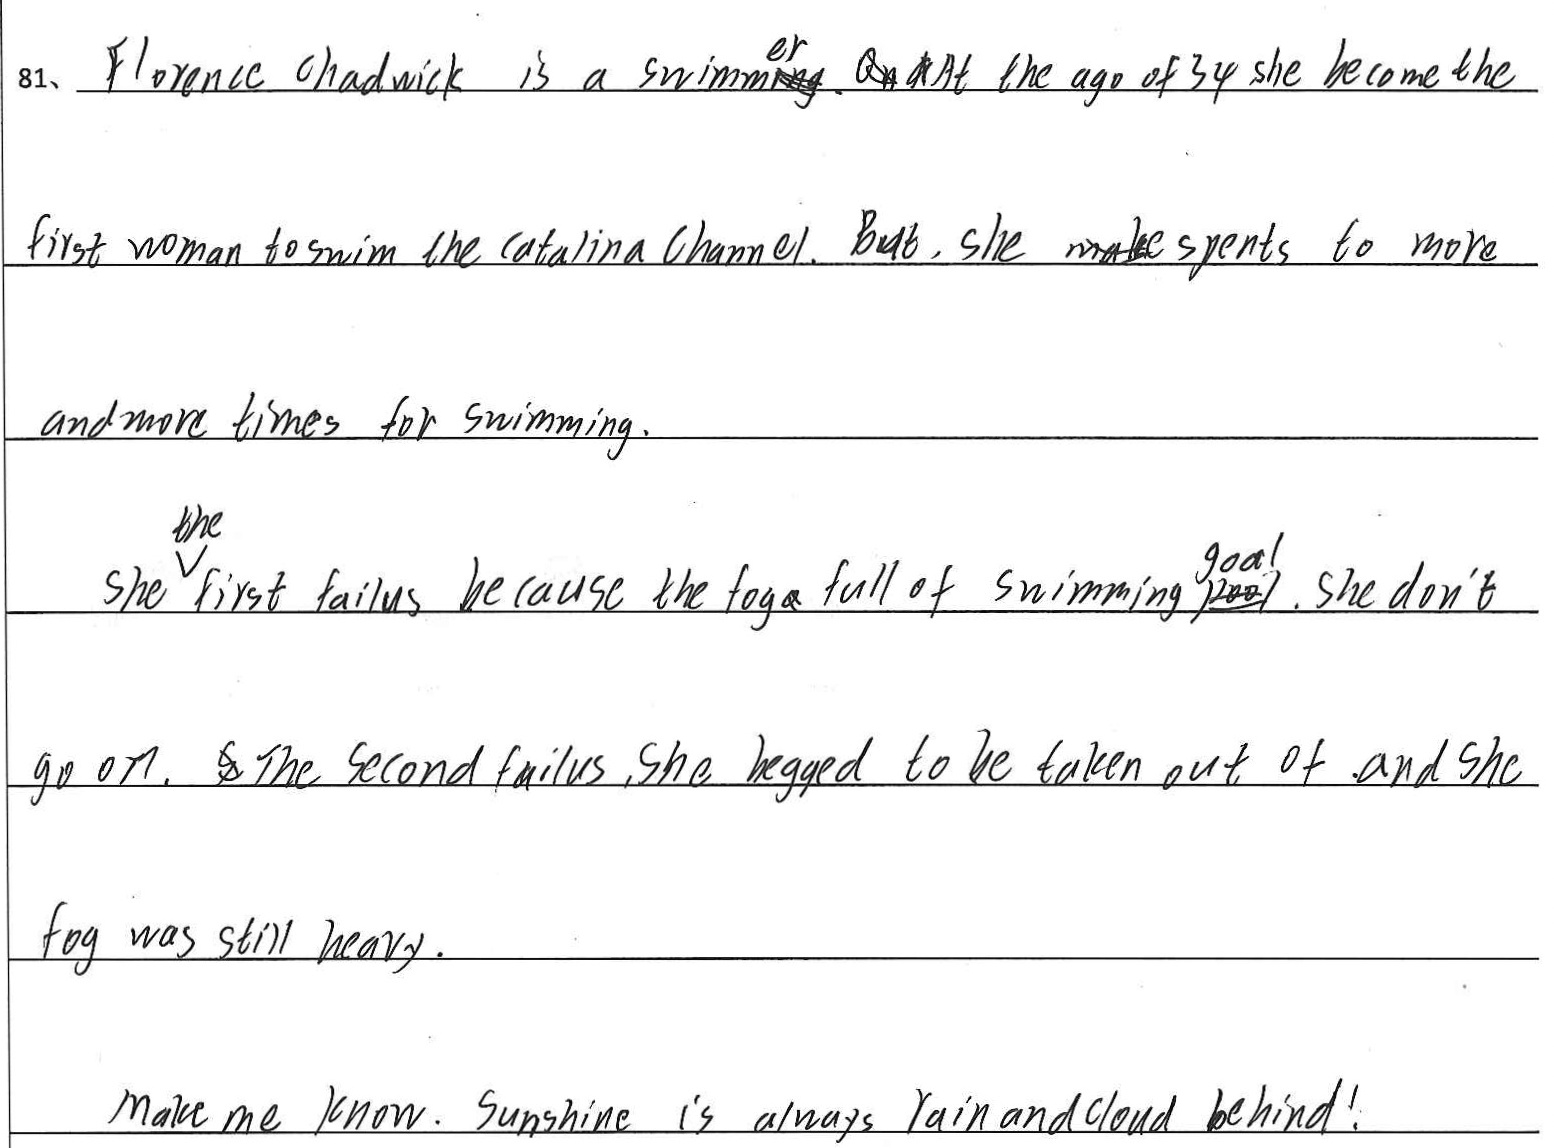 81、 Florence Chadwick is a swimmer. At the ago of 34 she become the
first woman to swim the Catalina Channel. But, she spents to more
and more times for swimming.
She the first failus because the fog full of swimming goal. She don't
go on. The second failus, she begged to be taken out of .and She
fog was still heavy.
Make me know. Sunshine is always rain and cloud behind!